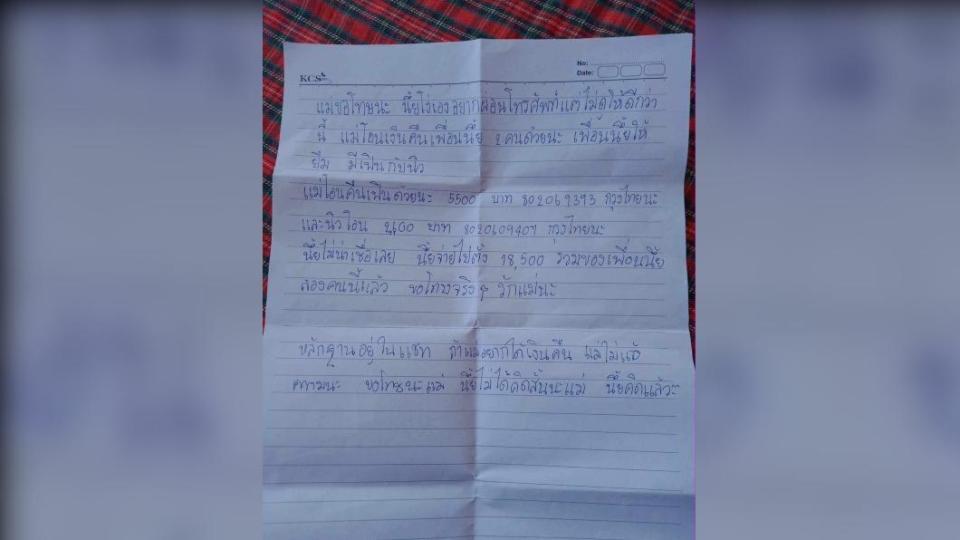 KCS
No:
Date:
แม่ขอโทษนะ นี้ยโง่เองอยากผ่อนโทรศัพท์แต่ไม่ดูให้ดีกว่า
นี้ แม่โอนเงินคืนเพื่อนนี้ย 2 คนด้วยนะ เพื่อนนี้ยให้
ยืม มีเฟินกับนิว
แม่โอนคืนเฟินด้วยนะ 5500 บาท 802069393 กรุงไทยนะ
และนิวโอน บาท 8020609407 กรุงไทยนะ
นี้ยไม่น่าเชื่อเลย นี้ยจ่ายไปตั้ง 18,500 รวมของเพื่อนนี้ย
สองคนนี้แล้ว ขอโทษจริงๆ รักแม่นะ
หลักฐานอยู่ในแชท ถ้าแม่อยากได้เงินคืน แม่ไม่แจ้
ความนะ ขอโทษนะแม่ นี้ยไม่ได้คิดสั้นนะแม่ นี้ยคิดแล้ว